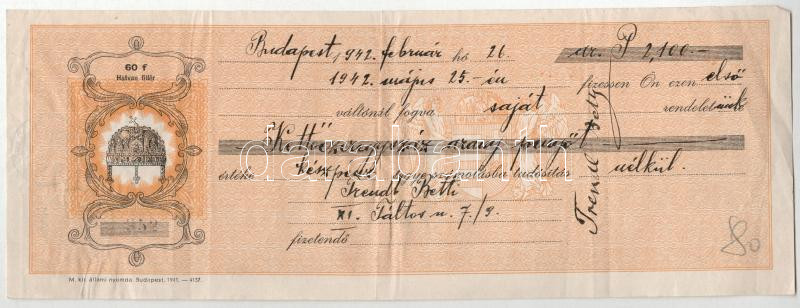 60 f
Hatvan fillér
Budapest, 1942. február hó 26 ár. P 2,100.—
1942. május 25.-én fizessen Ön ezen első
váltónál fogva saját rendeletünk
Kettőezeregyszáz arany pengőt
értéke készpénz számolásba tudósítás nélkül.
Trendl Betti
XI. Táltos u. 7/9.
fizetendő
Trendl Betti
80
M. kir. állami nyomda. Budapest, 1941. — 4137.
darabanth